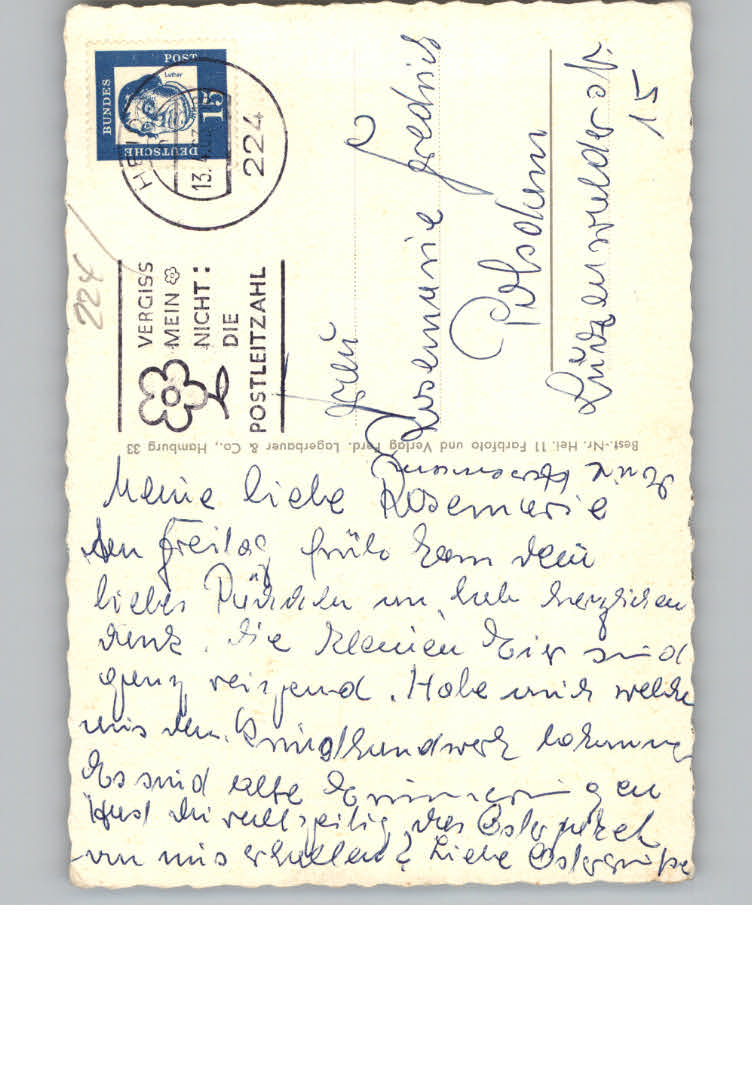 DEUTSCHE
BUNDES
POST
Luther
15
13.4.
224
224
VERGISS
MEIN
NICHT:
DIE
POSTLEITZAHL
Frau
Rosemarie Fredrich
Potsdam
Lückenwalder st.
15
Best.-Nr. Hei. 11 Farbfoto und Verlag Ferd. Lagerbauer & Co., Hamburg 33
Meine liebe Rosemarie
den Freitag früh kam dein
liebes Päckchen an, hab herzlichen
dank. die kleinen Eier sind
ganz reizend. Habe auch welche
aus dem
Es sind alte Erinnerungen
Hast du rechtzeitig das Osterpaket
von mir erhalten? Liebe Ostergrüße